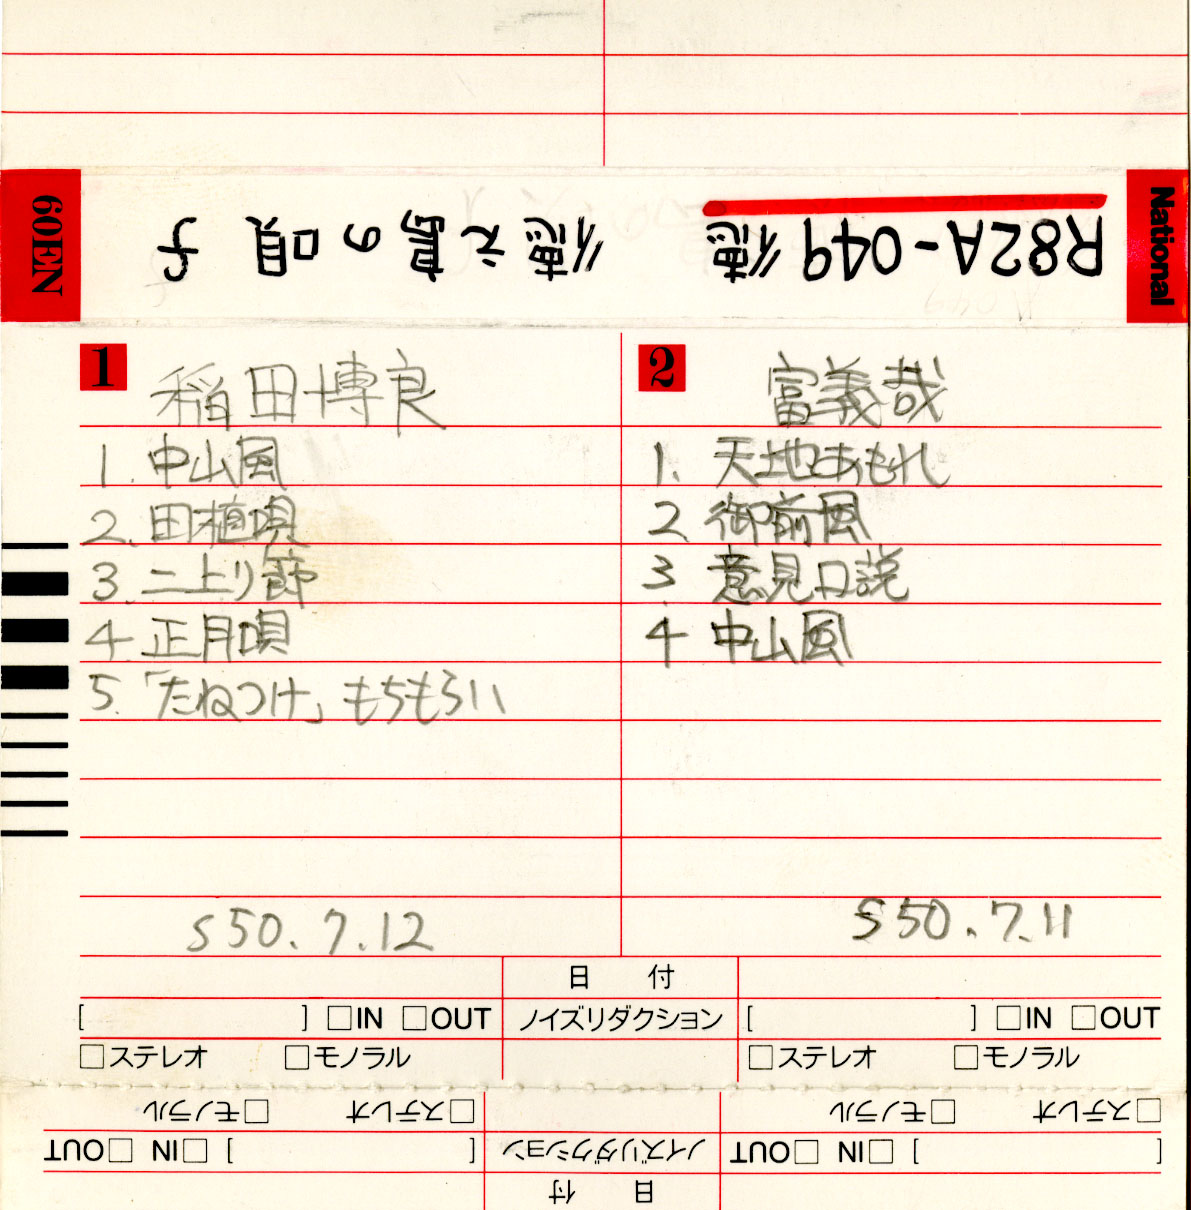 National
R82A-049 徳 徳之島の唄 子
60EN
1 稲田博良
1. 中山風
2. 田植唄
3. 二上り節
4. 正月唄
5.「たねつけ」もちもらい
S50.7.12
2 富義哉
1. 天地あもれ
2 御前風
3 意見口説
4 中山風
S50.7.11
日 付
[ ] □IN □OUT ノイズリダクション [ ] □IN □OUT
□ステレオ □モノラル □ステレオ □モノラル
日 付
[ ] □IN □OUT ノイズリダクション [ ] □IN □OUT
□ステレオ □モノラル □ステレオ □モノラル